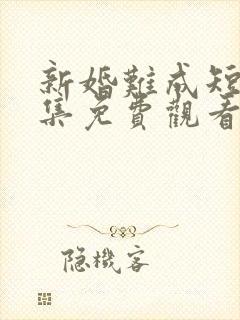 新婚難成短
集免費觀看
隐機客